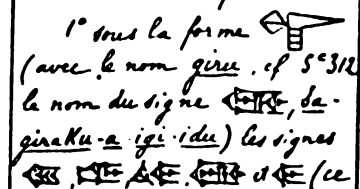 1° sous la forme
(avec le nom giru, cf 5ᶜ312
le nom du signe , Ša-
giraKu-a igi-idu) les signes
, , , et (ce